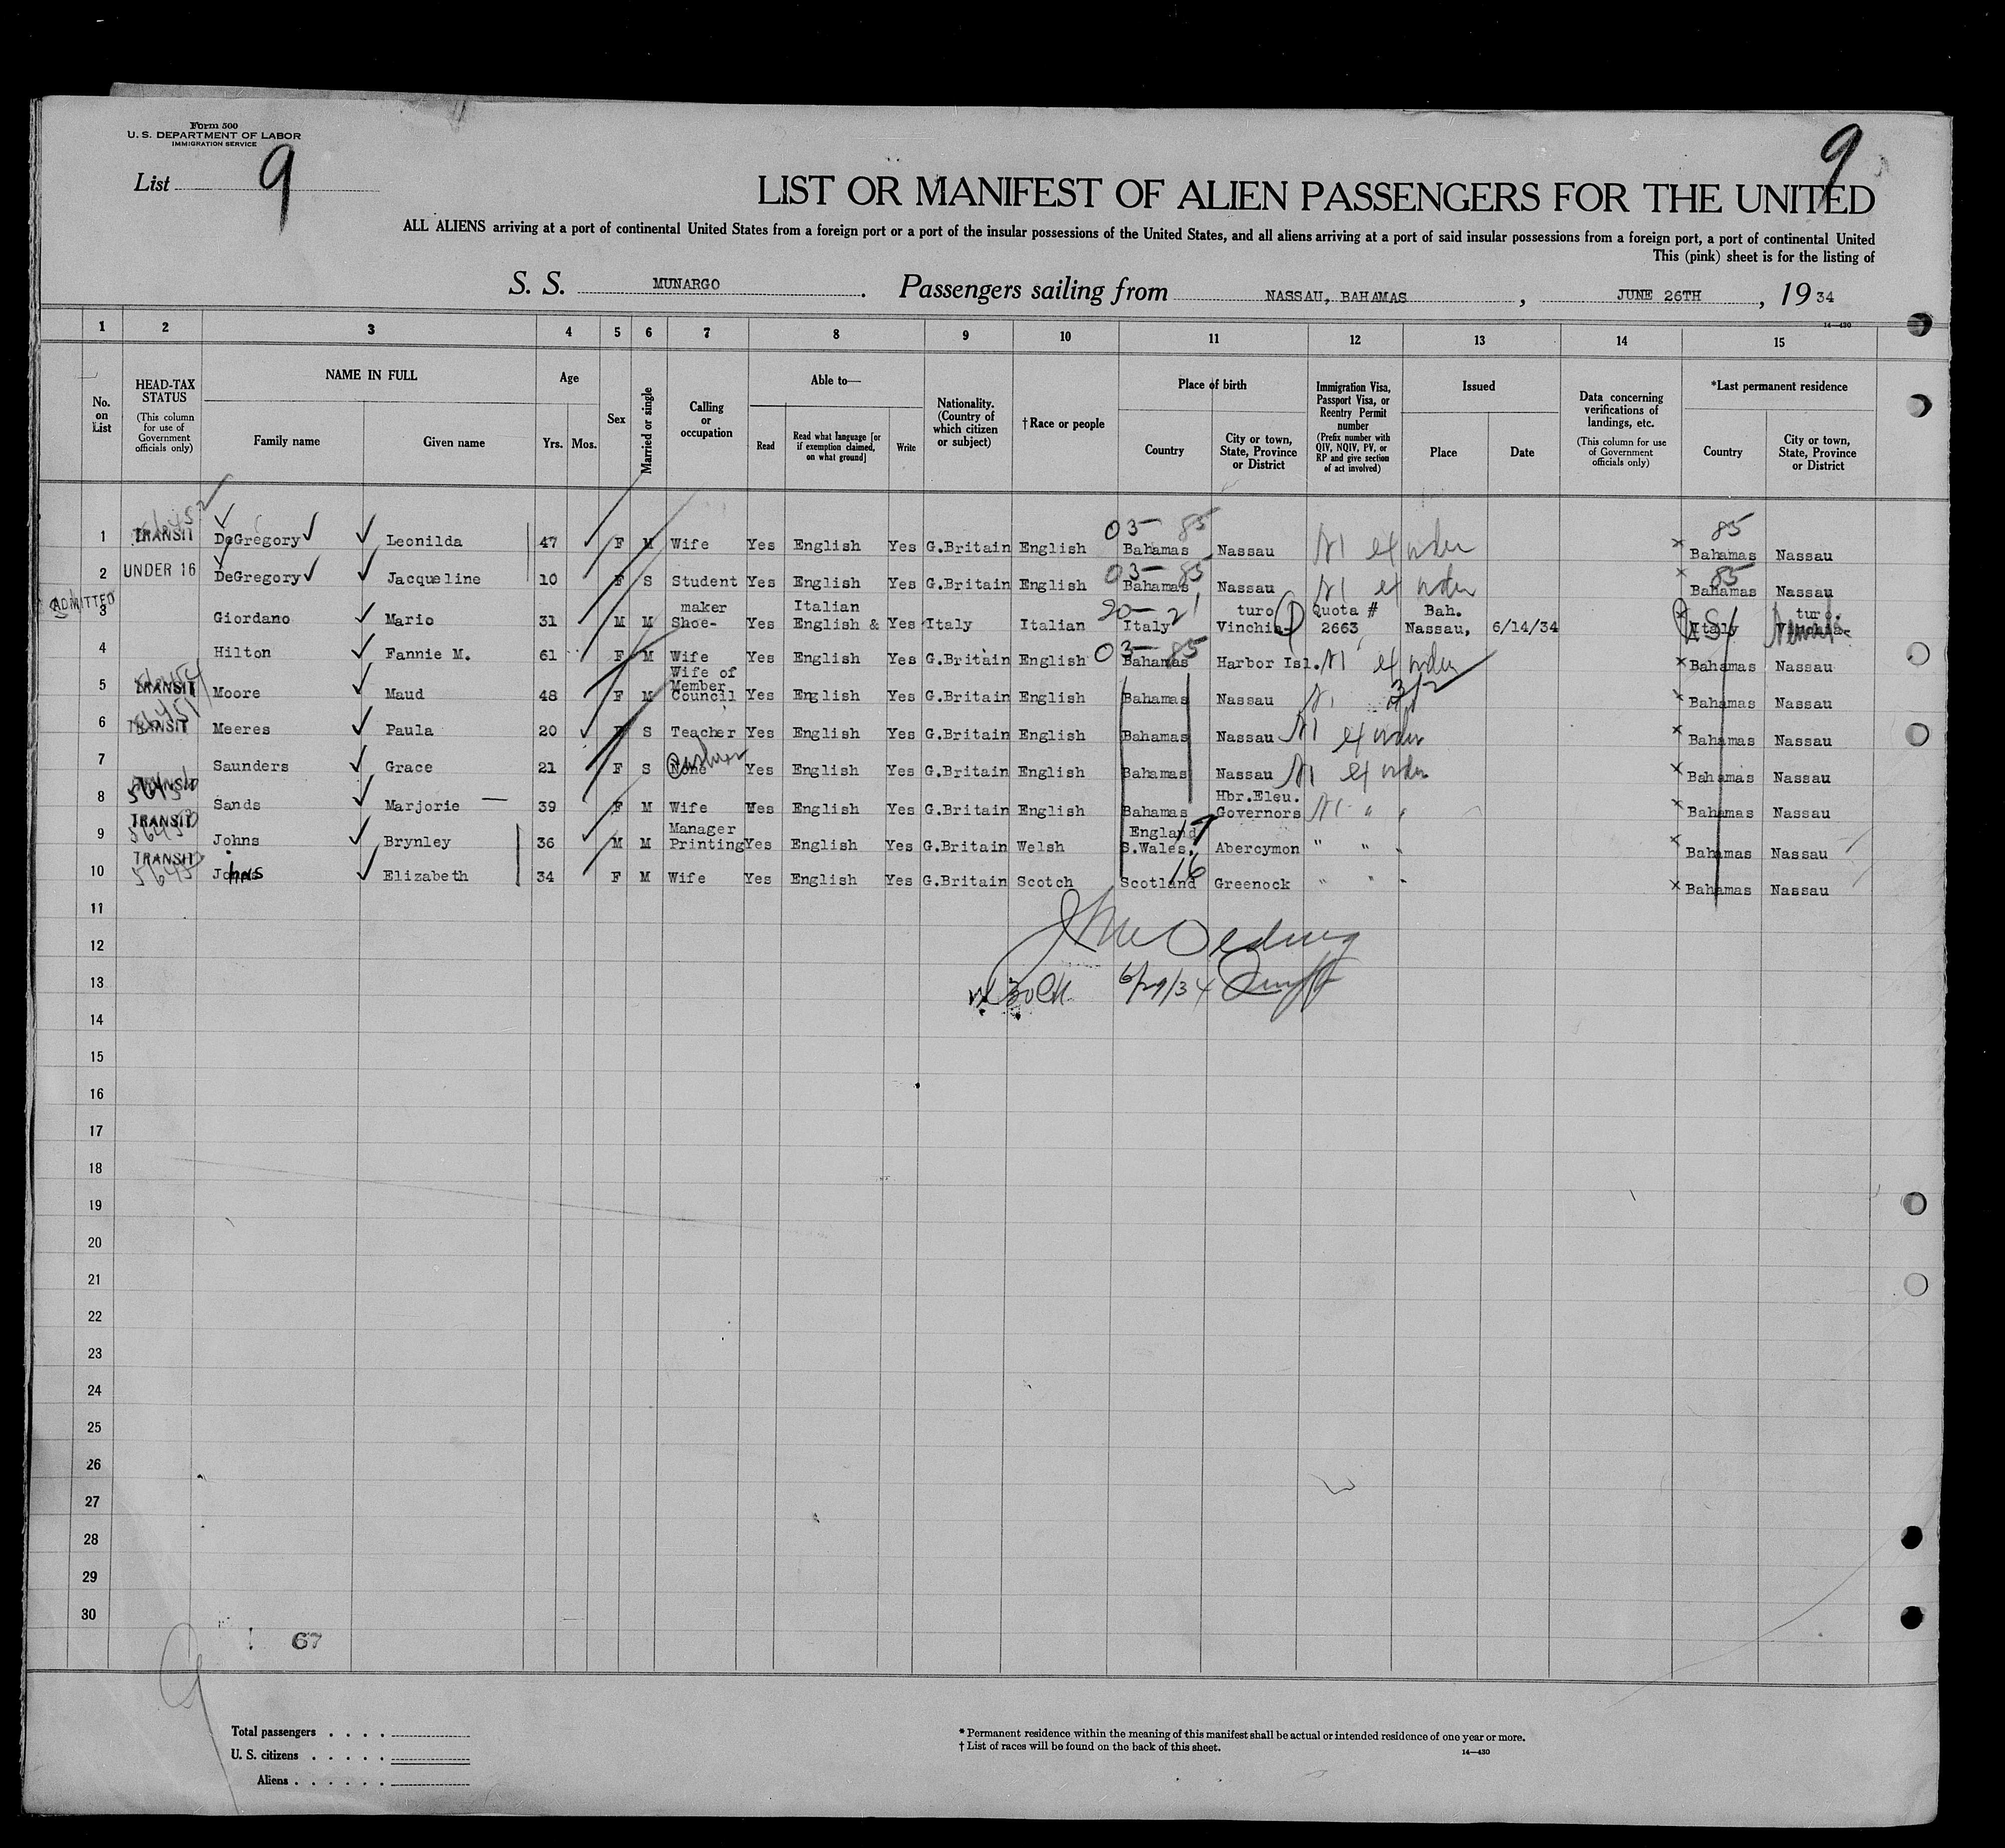 Form 500
U. S. DEPARTMENT OF LABOR
IMMIGRATION SERVICE
List 9
9
LIST OR MANIFEST OF ALIEN PASSENGERS FOR THE UNITED
ALL ALIENS arriving at a port of continental United States from a foreign port or a port of the insular possessions of the United States, and all aliens arriving at a port of said insular possessions from a foreign port, a port of continental United
This (pink) sheet is for the listing of
S. S. MUNARGO. Passengers sailing from NASSAU, BAHAMAS, JUNE 26TH, 1934
14—430
1 2 3 4 5 6 7 8 9 10 11 12 13 14 15
No. on List
HEAD-TAX STATUS
(This column for use of Government officials only)
NAME IN FULL
Family name Given name
Age
Yrs. Mos.
Sex
Married or single
Calling or occupation
Able to—
Read
Read what language [or if exemption claimed, on what ground]
Write
Nationality. (Country of which citizen or subject)
†Race or people
Place of birth
Country
City or town, State, Province or District
Immigration Visa, Passport Visa, or Reentry Permit number
(Prefix number with QIV, NQIV, PV, or RP and give section of act involved)
Issued
Place Date
Data concerning verifications of landings, etc.
(This column for use of Government officials only)
*Last permanent residence
Country
City or town, State, Province or District
03- 85 85
1 TRANSIT DeGregory Leonilda 47 F M Wife Yes English Yes G.Britain English Bahamas Nassau x Bahamas Nassau
03- 85 85
2 UNDER 16 DeGregory Jacqueline 10 F S Student Yes English Yes G.Britain English Bahamas Nassau x Bahamas Nassau
ADMITTED
maker Italian 20- 21 turo Quota # Bah. turo
3 Giordano Mario 31 M M Shoe- Yes English & Yes Italy Italian Italy Vinchia- 2663 Nassau, 6/14/34 x Italy Vinchia-
03- 85
4 Hilton Fannie M. 61 F M Wife Yes English Yes G.Britain English Bahamas Harbor Isl. x Bahamas Nassau
Wife of
Member
5 TRANSIT Moore Maud 48 F M Council Yes English Yes G.Britain English Bahamas Nassau 3/2 x Bahamas Nassau
6 TRANSIT Meeres Paula 20 F S Teacher Yes English Yes G.Britain English Bahamas Nassau x Bahamas Nassau
7 Saunders Grace 21 F S None Yes English Yes G.Britain English Bahamas Nassau x Bahamas Nassau
TRANSIT
Hbr.Eleu.
8 Sands Marjorie — 39 F M Wife Yes English Yes G.Britain English Bahamas Governors " " x Bahamas Nassau
TRANSIT
Manager England 17
9 Johns Brynley 36 M M Printing Yes English Yes G.Britain Welsh S.Wales. Abercymon " " " x Bahamas Nassau
TRANSIT
16
10 Johns Elizabeth 34 F M Wife Yes English Yes G.Britain Scotch Scotland Greenock " " " x Bahamas Nassau
11
12
13 6/29/34
14
15
16
17
18
19
20
21
22
23
24
25
26
27
28
29
30
67
9
Total passengers . . . .
U. S. citizens . . . . .
Aliens . . . . . .
* Permanent residence within the meaning of this manifest shall be actual or intended residence of one year or more.
† List of races will be found on the back of this sheet.
14—430